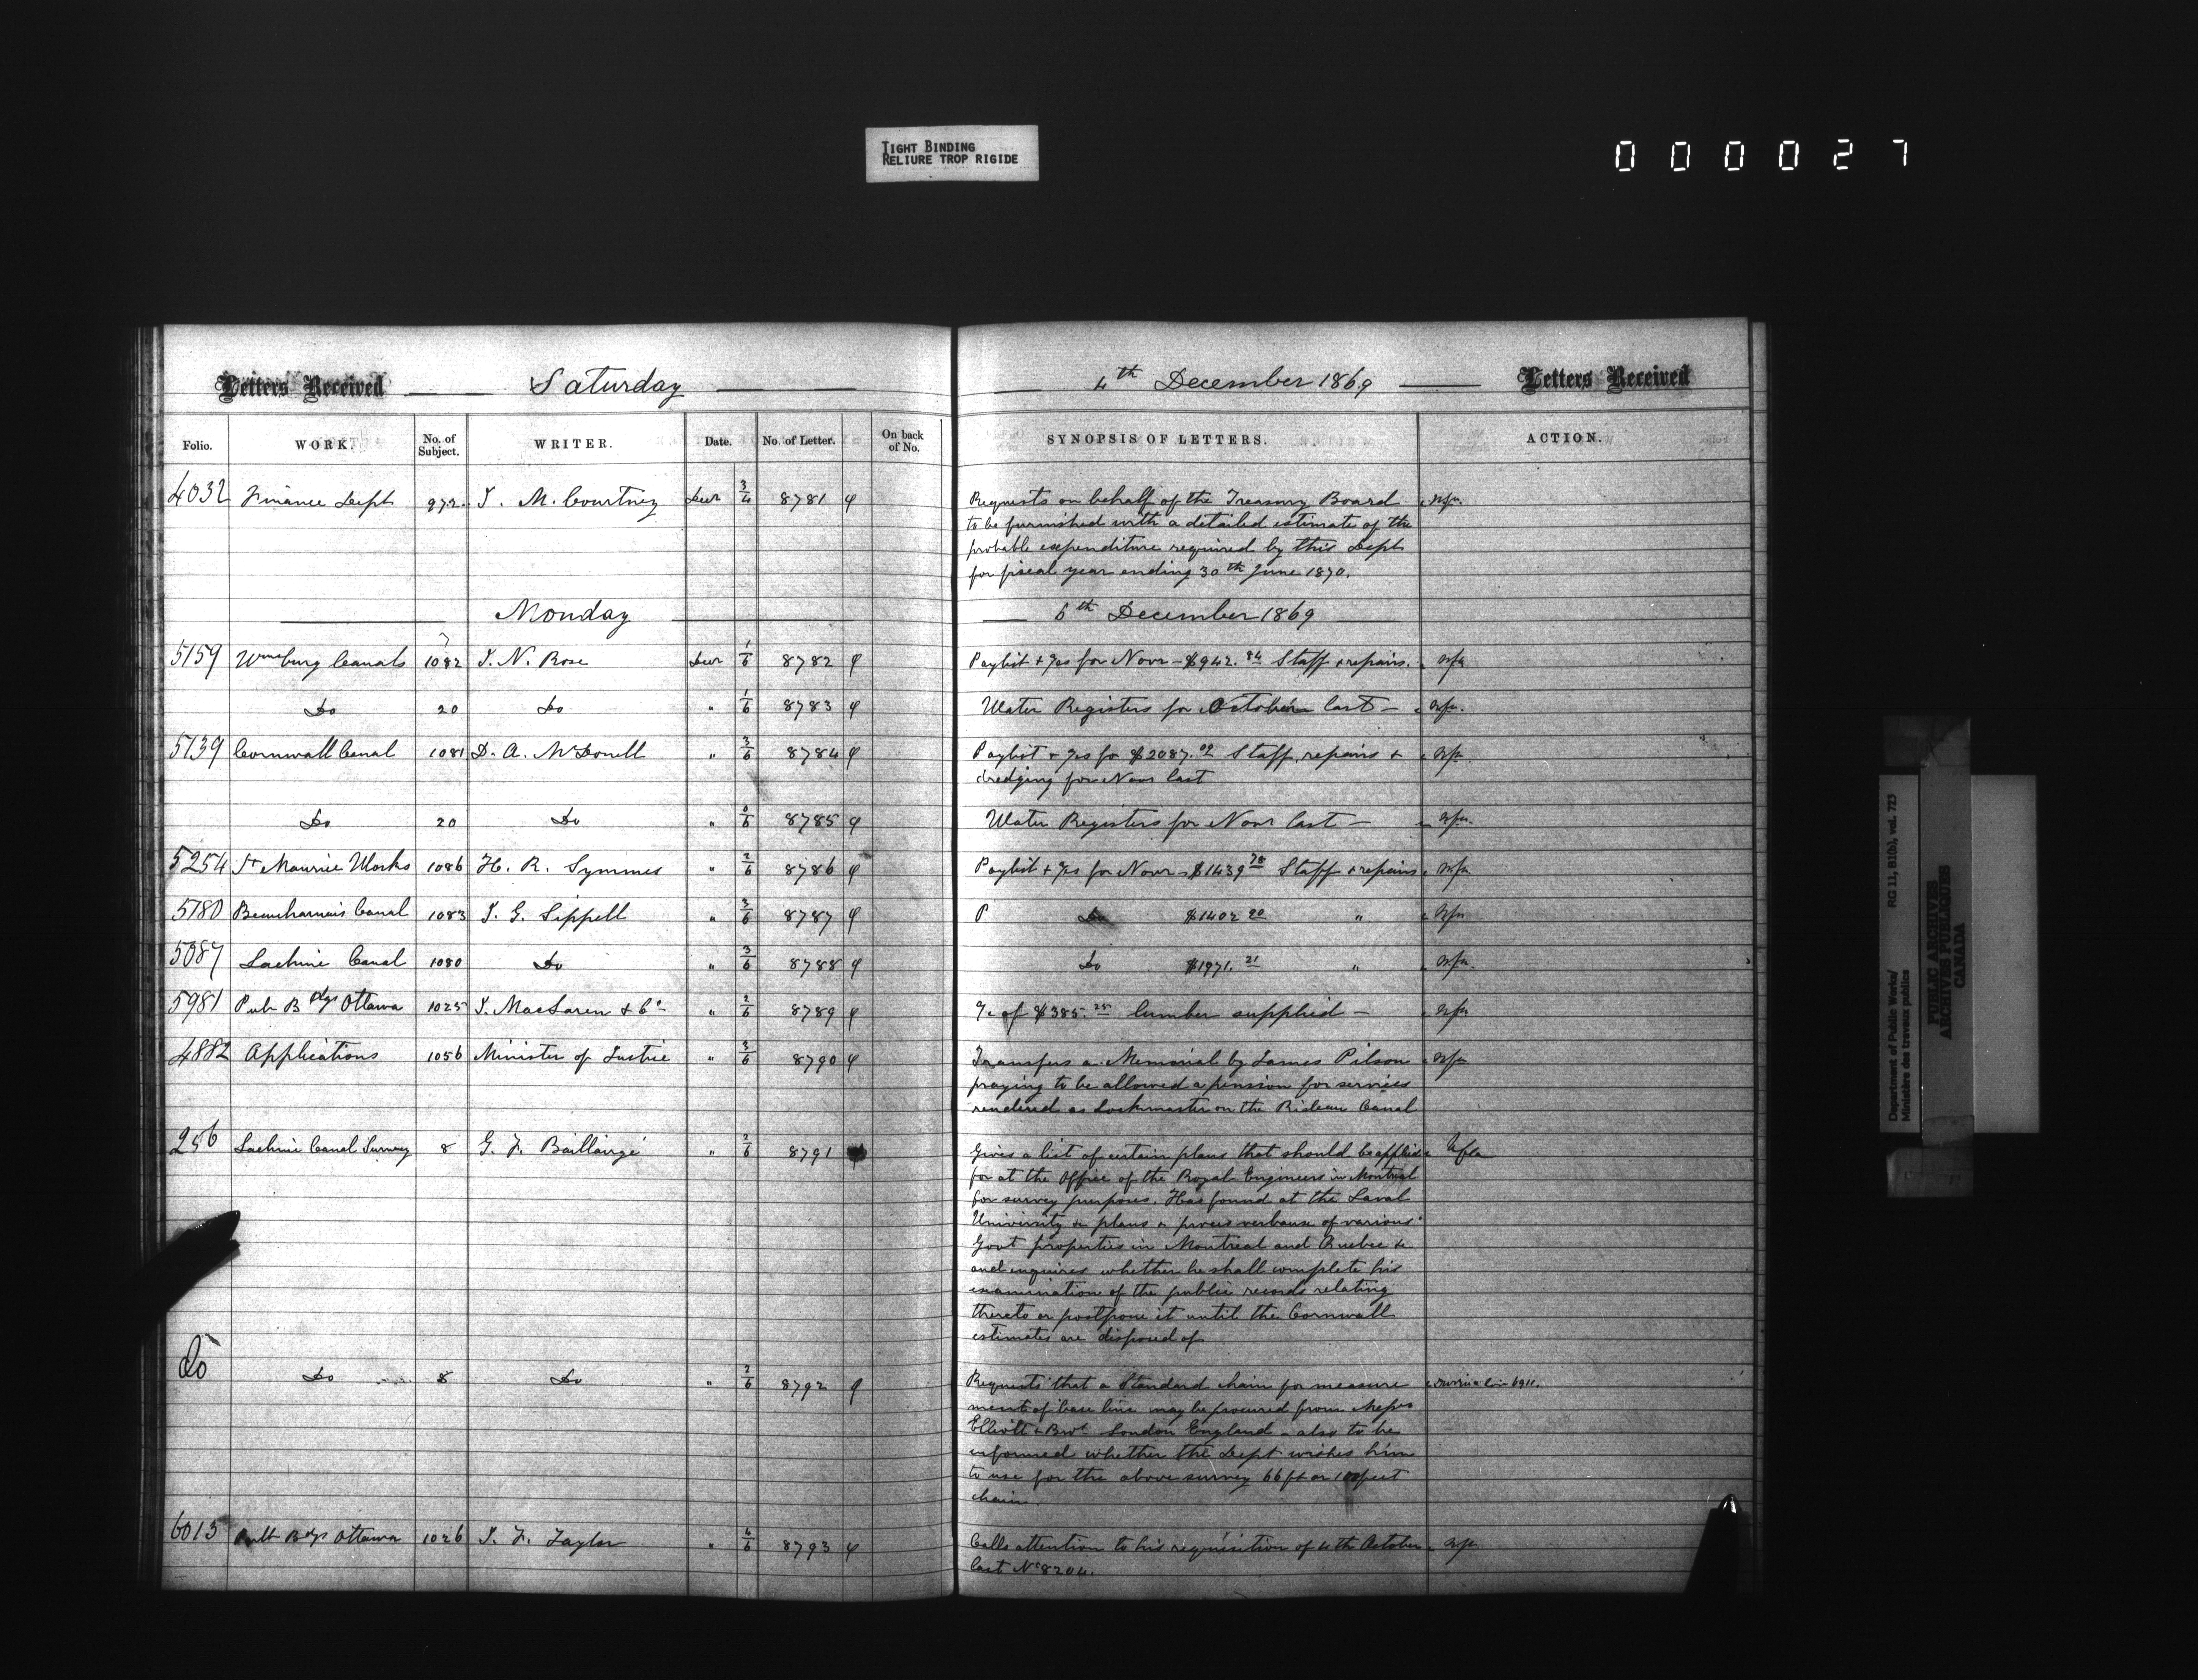 TIGHT BINDING
RELIURE TROP RIGIDE
000027
Letters Received Saturday 4th December 1869 Letters Received
Folio. WORK. No. of Subject. WRITER. Date. No. of Letter. On back of No. SYNOPSIS OF LETTERS. ACTION.
4032 Finance Dept 972. J. M. Courtney Decr 3/4 8781 Requests on behalf of the Treasury Board
to be furnished with a detailed estimate of the
probable expenditure required by this Dept
for fiscal year ending 30th June 1870.
Monday 6th December 1869
5159 Wmsburg Canals 1082 J. N. Rose Decr 1/6 8782 Paylist + for Novr - $942.84 Staff + repairs.
Do 20 Do " 1/6 8783 Water Registers for October last —
5139 Cornwall Canal 1081 D. A. McDonell " 3/6 8784 Paylist + for $2087.02 Staff, repairs +
dredging for Novr last
Do 20 Do " 8785 Water Registers for Novr last —
5254 St Maurice Works 1086 H. R. Symmes " 2/6 8786 Paylist + for Novr - $1439.78 Staff + repairs
5180 Beauharnois Canal 1083 J. G. Sippell " 3/6 8787 P Do $1402.20 "
5087 Lachine Canal 1080 Do " 3/6 8788 Do $1971.21 "
5981 Pub Bdgs Ottawa 1025 J. MacLaren & Co " 2/6 8789 of $385.25 lumber supplied —
4882 Applications 1056 Minister of Justice " 3/6 8790 Transfers a Memorial by James Pilson
praying to be allowed a pension for services
rendered as Lockmaster on the Rideau Canal
256 Lachine Canal Survey 8 G. F. Baillairgé " 2/6 8791 Gives a list of certain plans that should be applied
for at the Office of the Royal Engineers in Montreal
for survey purposes. Has found at the Laval
University &c plans & proces verbaux of various
Govt properties in Montreal and Quebec &c
and enquires whether he shall complete his
examination of the public records relating
thereto or postpone it until the Cornwall
estimates are disposed of
do Do 8 Do " 2/6 8792 Requests that a Standard chain for measure
ment of base line may be procured from Messrs
Elliott & Bros London England - also to be
informed whether the Dept wishes him
to use for the above survey 66 ft or 100 feet
chain.
6013 Bdgs Ottawa 1026 J. F. Taylor " 4/6 8793 Calls attention to his requisition of 4th October
last No 8204.
Department of Public Works/
Ministère des travaux publics
RG 11, B1(b), vol. 723
PUBLIC ARCHIVES
ARCHIVES PUBLIQUES
CANADA